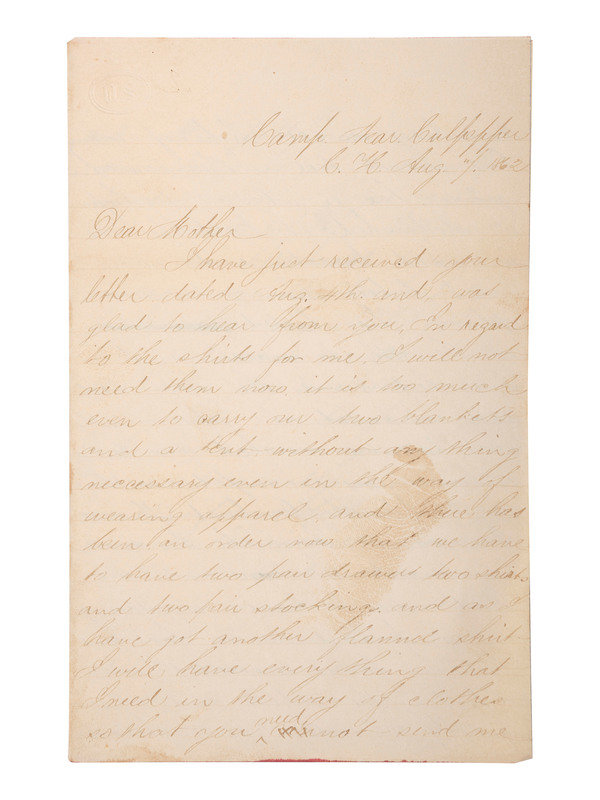 Camp. Near. Culpepper
C. H. Aug 7/. 1862
Dear Mother
I have just received your
letter dated Aug. 4th. and was
glad to hear from you. In regard
to the shirts for me. I will not
need them now. it is too much
even to carry our two blankets
and a tent without any thing
neccessary even in the way of
wearing apparel. and there has
been an order now that we have
to have two pair drawers two shirts
and two pair stocking. and as I
have got another flannel shirt
I will have every thing that
I need in the way of clothes
so that you need not send me